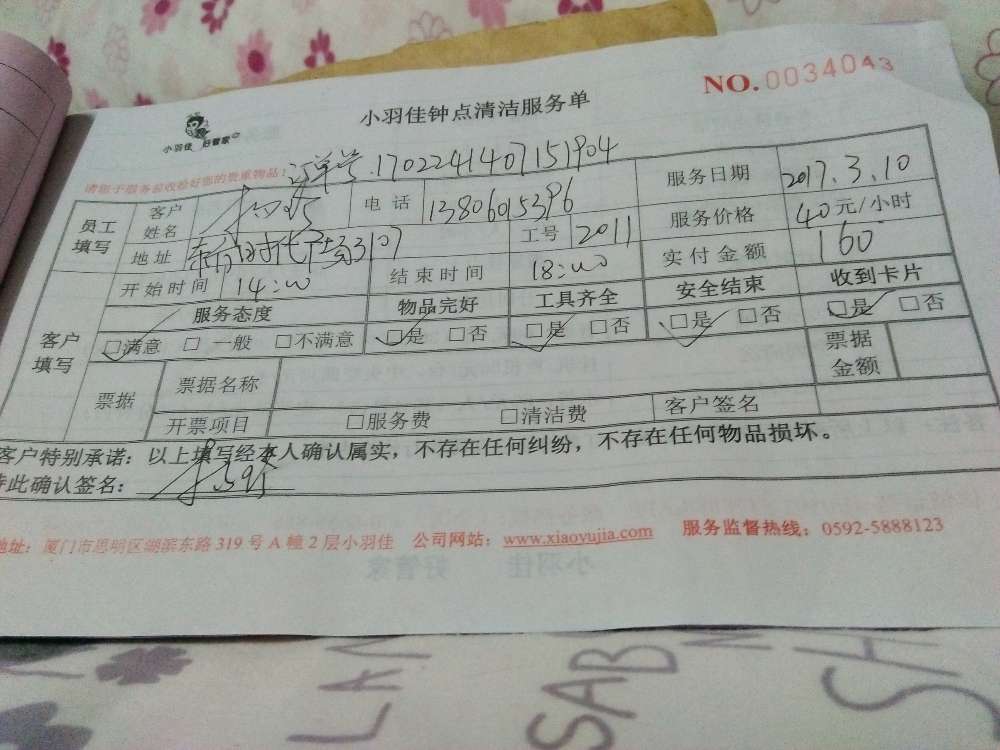 NO.0034043
小羽佳钟点清洁服务单
小羽佳 好管家
请您于服务前收检好您的贵重物品!
订单号.1702241407151904
员工填写 客户姓名 电话 13806015396 服务日期 2017.3.10
地址 3107 工号 2011 服务价格 40元/小时
开始时间 14:00 结束时间 18:00 实付金额 160
客户填写 服务态度 物品完好 工具齐全 安全结束 收到卡片
□满意 □一般 □不满意 □是 □否 □是 □否 □是 □否 □是 □否
票据 票据名称 票据金额
开票项目 □服务费 □清洁费 客户签名
客户特别承诺：以上填写经本人确认属实，不存在任何纠纷，不存在任何物品损坏。
特此确认签名：
地址：厦门市思明区湖滨东路319号A幢2层小羽佳 公司网站：www.xiaoyujia.com 服务监督热线：0592-5888123
SAB